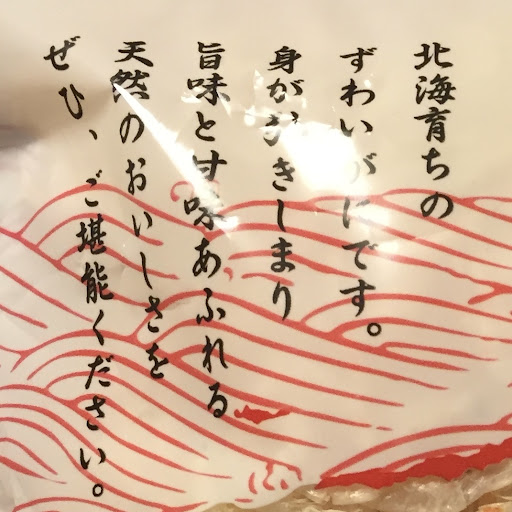 北海育ちの
ずわいがにです。
身がひきしまり
旨味と甘味あふれる
天然のおいしさを
ぜひ、ご堪能ください。